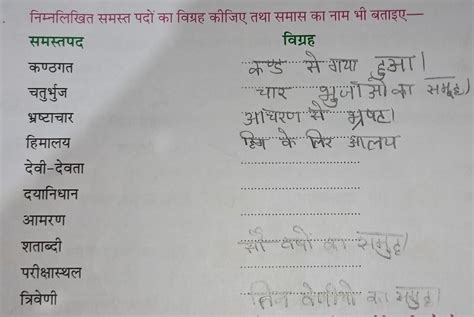 निम्नलिखित समस्त पदों का विग्रह कीजिए तथा समास का नाम भी बताइए—
समस्तपद विग्रह
कण्ठगत कण्ड से गया हुआ।
चतुर्भुज चार भुजाओ का समूह)
भ्रष्टाचार आचरण से भ्रष्ट।
हिमालय के लिए आलय
देवी-देवता
दयानिधान
आमरण
शताब्दी सौ वर्षो का समुह)
परीक्षास्थल
त्रिवेणी तिन वेणीयो का समुह)